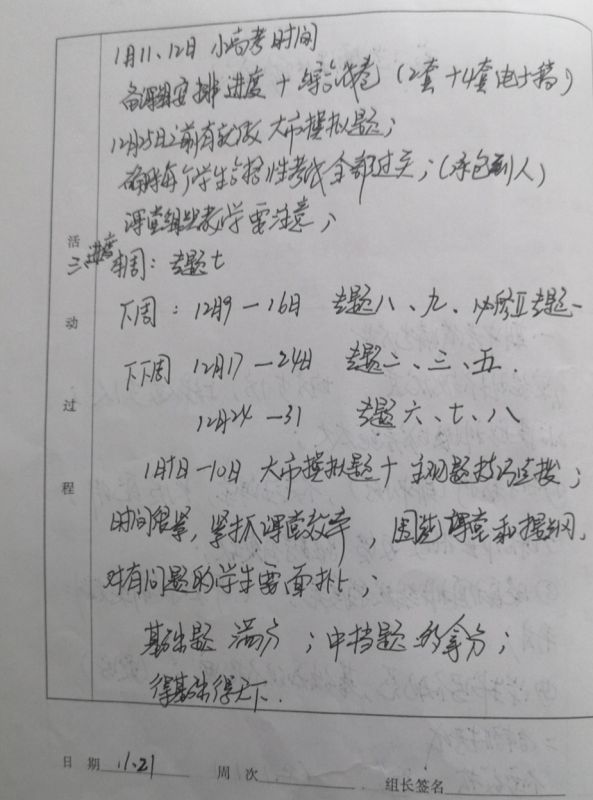 1月11、12日 小高考时间
备课组安排进度 + 综合试卷（2套+4套电子稿）
12月25日之前有效做大市模拟题；
确保每个学生合格性考试全部过关；（承包到人）
课堂组织教学要注意；
三、进度
本周：专题七
下周：12月9—16日 专题八、九、必修Ⅱ专题一
下下周 12月17—24日 专题二、三、五.
12月24—31 专题六、七、八
1月1日—10日 大市模拟题+主观题技巧点拨；
时间很紧，紧抓课堂效率，围绕课堂和提纲，
对有问题的学生要面批；
基础题 满分；中档题 多拿分；
得基础得天下.
活动过程
日期 11.21 周次 组长签名